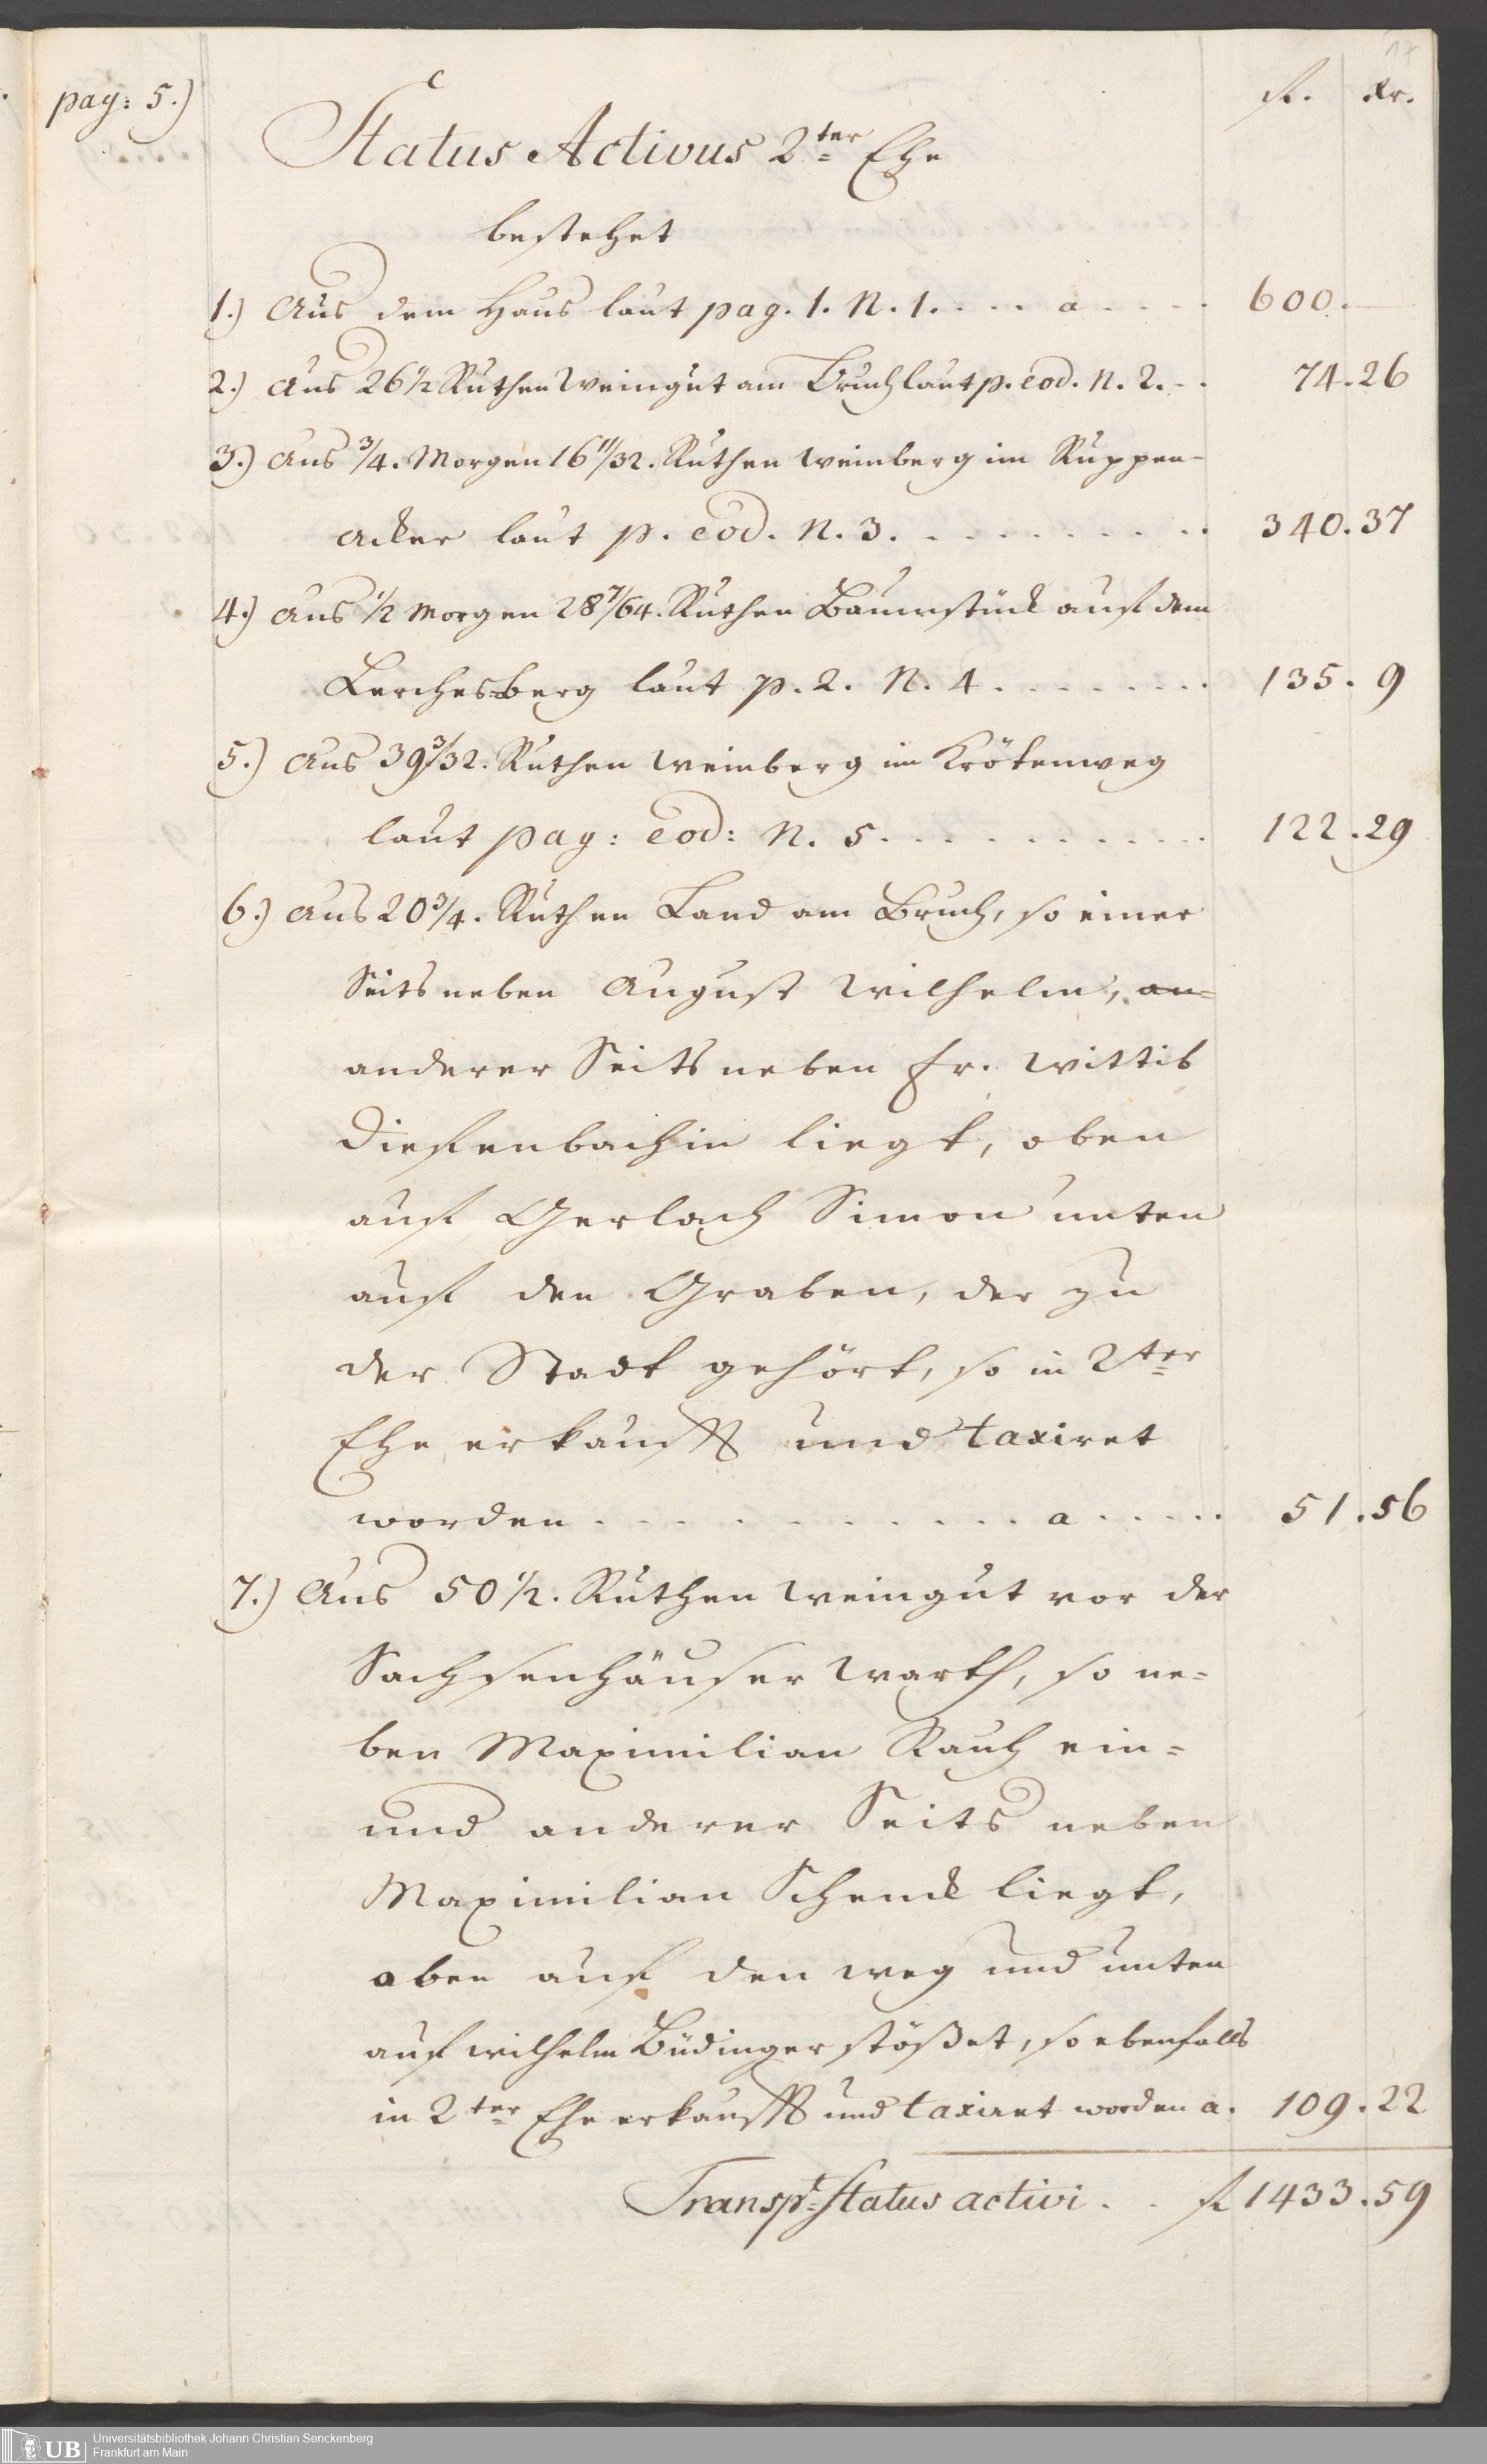 17
pag: 5.)
fl. Xr.
C
Status Activus 2ter Ehe
bestehet
1.) Aus dem Haus laut pag. 1. N. 1. . . . . a . . . . 600. —
2.) Aus 26 1/2 Ruthen Weingut am Bruch laut p. eod. N. 2. . . 74. 26
3.) Aus 3/4. Morgen 16 11/32. Ruthen Weinberg im Ruppen-
acker laut p. eod. N. 3. . . . . . . . . . 340. 37
4.) Aus 1/2 Morgen 28 7/64. Ruthen Baumstück auf dem
Lerches-berg laut p. 2. N. 4. . . . . . . . 135. 9
5.) Aus 39 3/32. Ruthen Weinberg im Krötenweg
laut pag: eod: N. 5. . . . . . . . . . . 122. 29
6.) Aus 20 3/4. Ruthen Land am Bruch, so einer
Seits neben August Wilhelm, an=
anderer Seits neben Fr. Wittib
Diefenbachin liegt, oben
auf Gerlach Simon unten
auf den Graben, der zu
der Stadt gehört, so in 2ter
Ehe erkaufft und taxiret
worden . . . . . . . . . . . a . . . . . 51. 56
7.) Aus 50 1/2. Ruthen Weingut vor der
Sachsenhäuser Warth, so ne=
ben Maximilian Rauch ein=
und anderer Seits neben
Maximilian Schenck liegt,
oben auf den Weg und unten
auf Wilhelm Büdinger stößet, so ebenfalls
in 2ter Ehe erkaufft und taxiret worden a. 109. 22
Transpt. Status activi . . fl 1433. 59
UB
Universitätsbibliothek Johann Christian Senckenberg
Frankfurt am Main